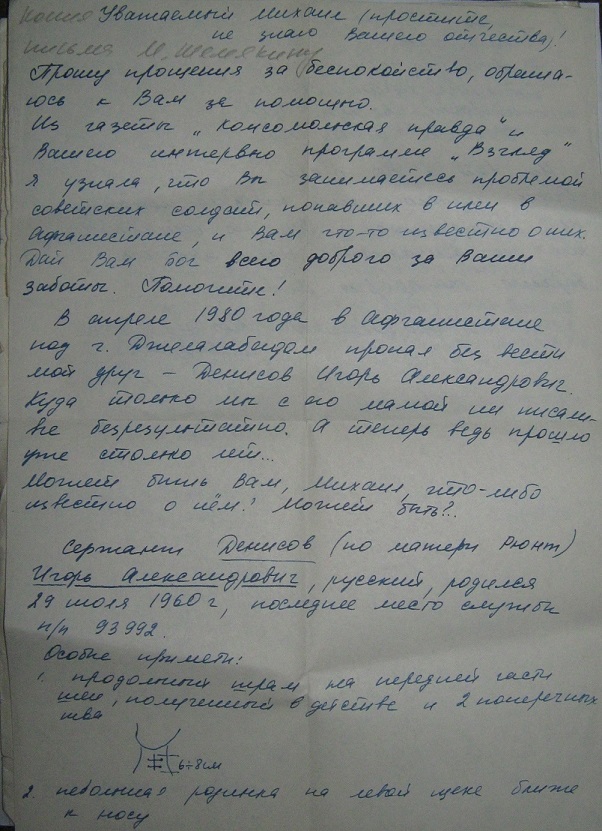 копия Уважаемый Михаил (простите,
не знаю Вашего отчества)!
письма М. Шемякину
Прошу прощения за беспокойство, обраща-
юсь к Вам за помощью.
Из газеты „Комсомольская правда" и
Вашего интервью программе „Взгляд"
я узнала, что Вы занимаетесь проблемой
советских солдат, попавших в плен в
Афганистане, и Вам что-то известно о них.
Дай Вам Бог всего доброго за Ваши
заботы. Помогите!
В апреле 1980 года в Афганистане
под г. Джелалабадом пропал без вести
мой друг – Денисов Игорь Александрович.
Куда только мы с его мамой ни писали –
все безрезультатно. А теперь ведь прошло
уже столько лет...
Может быть Вам, Михаил, что-либо
известно о нём? Может быть?..
Сержант Денисов (по матери Рюнт)
Игорь Александрович, русский, родился
29 июля 1960 г, последнее место службы
п/п 93992.
Особые приметы:
1. продольный шрам на передней части
шеи, полученный в детстве и 2 поперечных
шва
6÷8см
2. небольшая родинка на левой щеке ближе
к носу